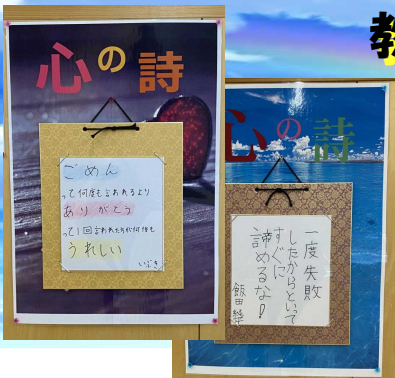 心の詩
ごめん
って何度も言われるより
ありがとう
って1回言われた方が何倍も
うれしい
いぶき
教
心の詩
一度失敗
したからといって
すぐに
諦めるな!
飯田